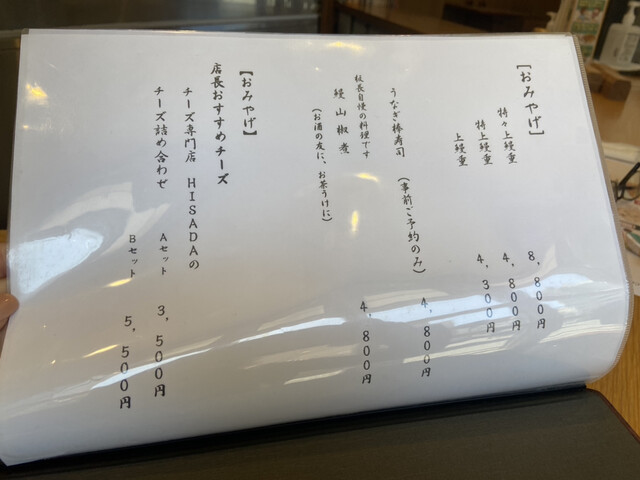 【おみやげ】
特々上鰻重 8,800円
特上鰻重 4,800円
上鰻重 4,300円
うなぎ棒寿司 (事前ご予約のみ) 4,800円
板長自慢の料理です
鰻山椒煮 4,800円
(お酒の友に、お茶うけに)
【おみやげ】
店長おすすめチーズ
チーズ専門店 HISADAの
チーズ詰め合わせ
Aセット 3,500円
Bセット 5,500円